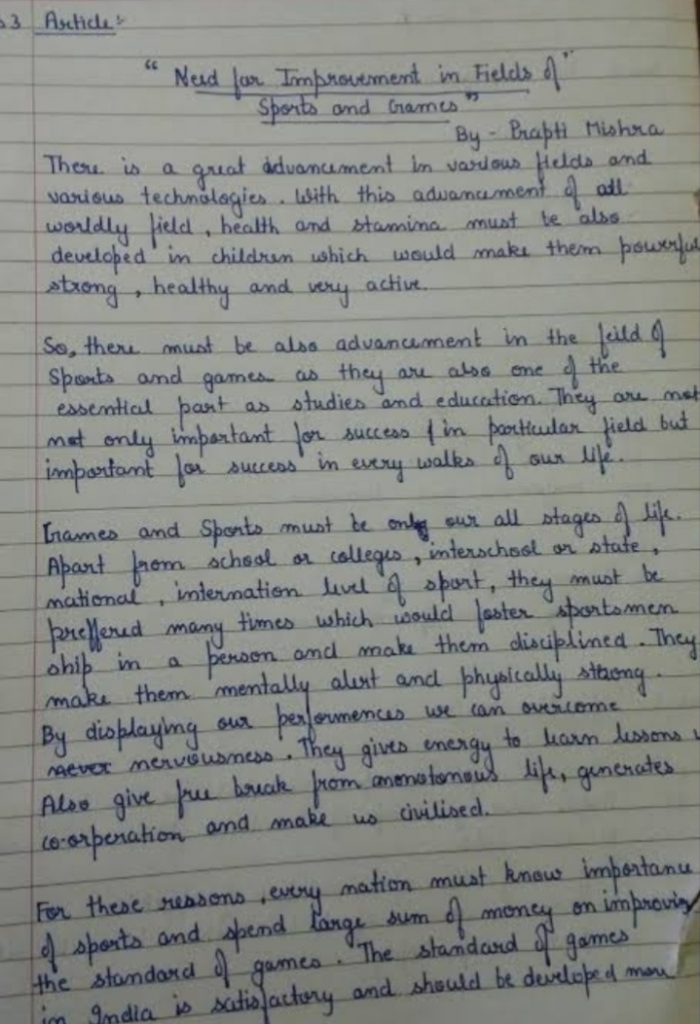 3 Article:-
"Need for Improvement in Fields of"
Sports and Games"
By - Prapti Mishra
There is a great advancement in various fields and
various technologies. With this advancement of all
worldly field, health and stamina must be also
developed in children which would make them powerful
strong, healthy and very active.
So, there must be also advancement in the feild of
Sports and games as they are also one of the
essential part as studies and education. They are not
not only important for success in particular field but
important for success in every walks of our life.
Games and Sports must be our all stages of life.
Apart from school or colleges, interschool or state,
national, internation level of sport, they must be
preffered many times which would foster sportsmen
ship in a person and make them disciplined. They
make them mentally alert and physically strong.
By displaying our performences we can overcome
never nerviousness. They gives energy to learn lessons
Also give free break from monotonous life, generates
co-orperation and make us civilised.
For these reasons, every nation must know importance
of sports and spend large sum of money on improving
the standard of games. The standard of games
in India is satisfactory and should be developed more